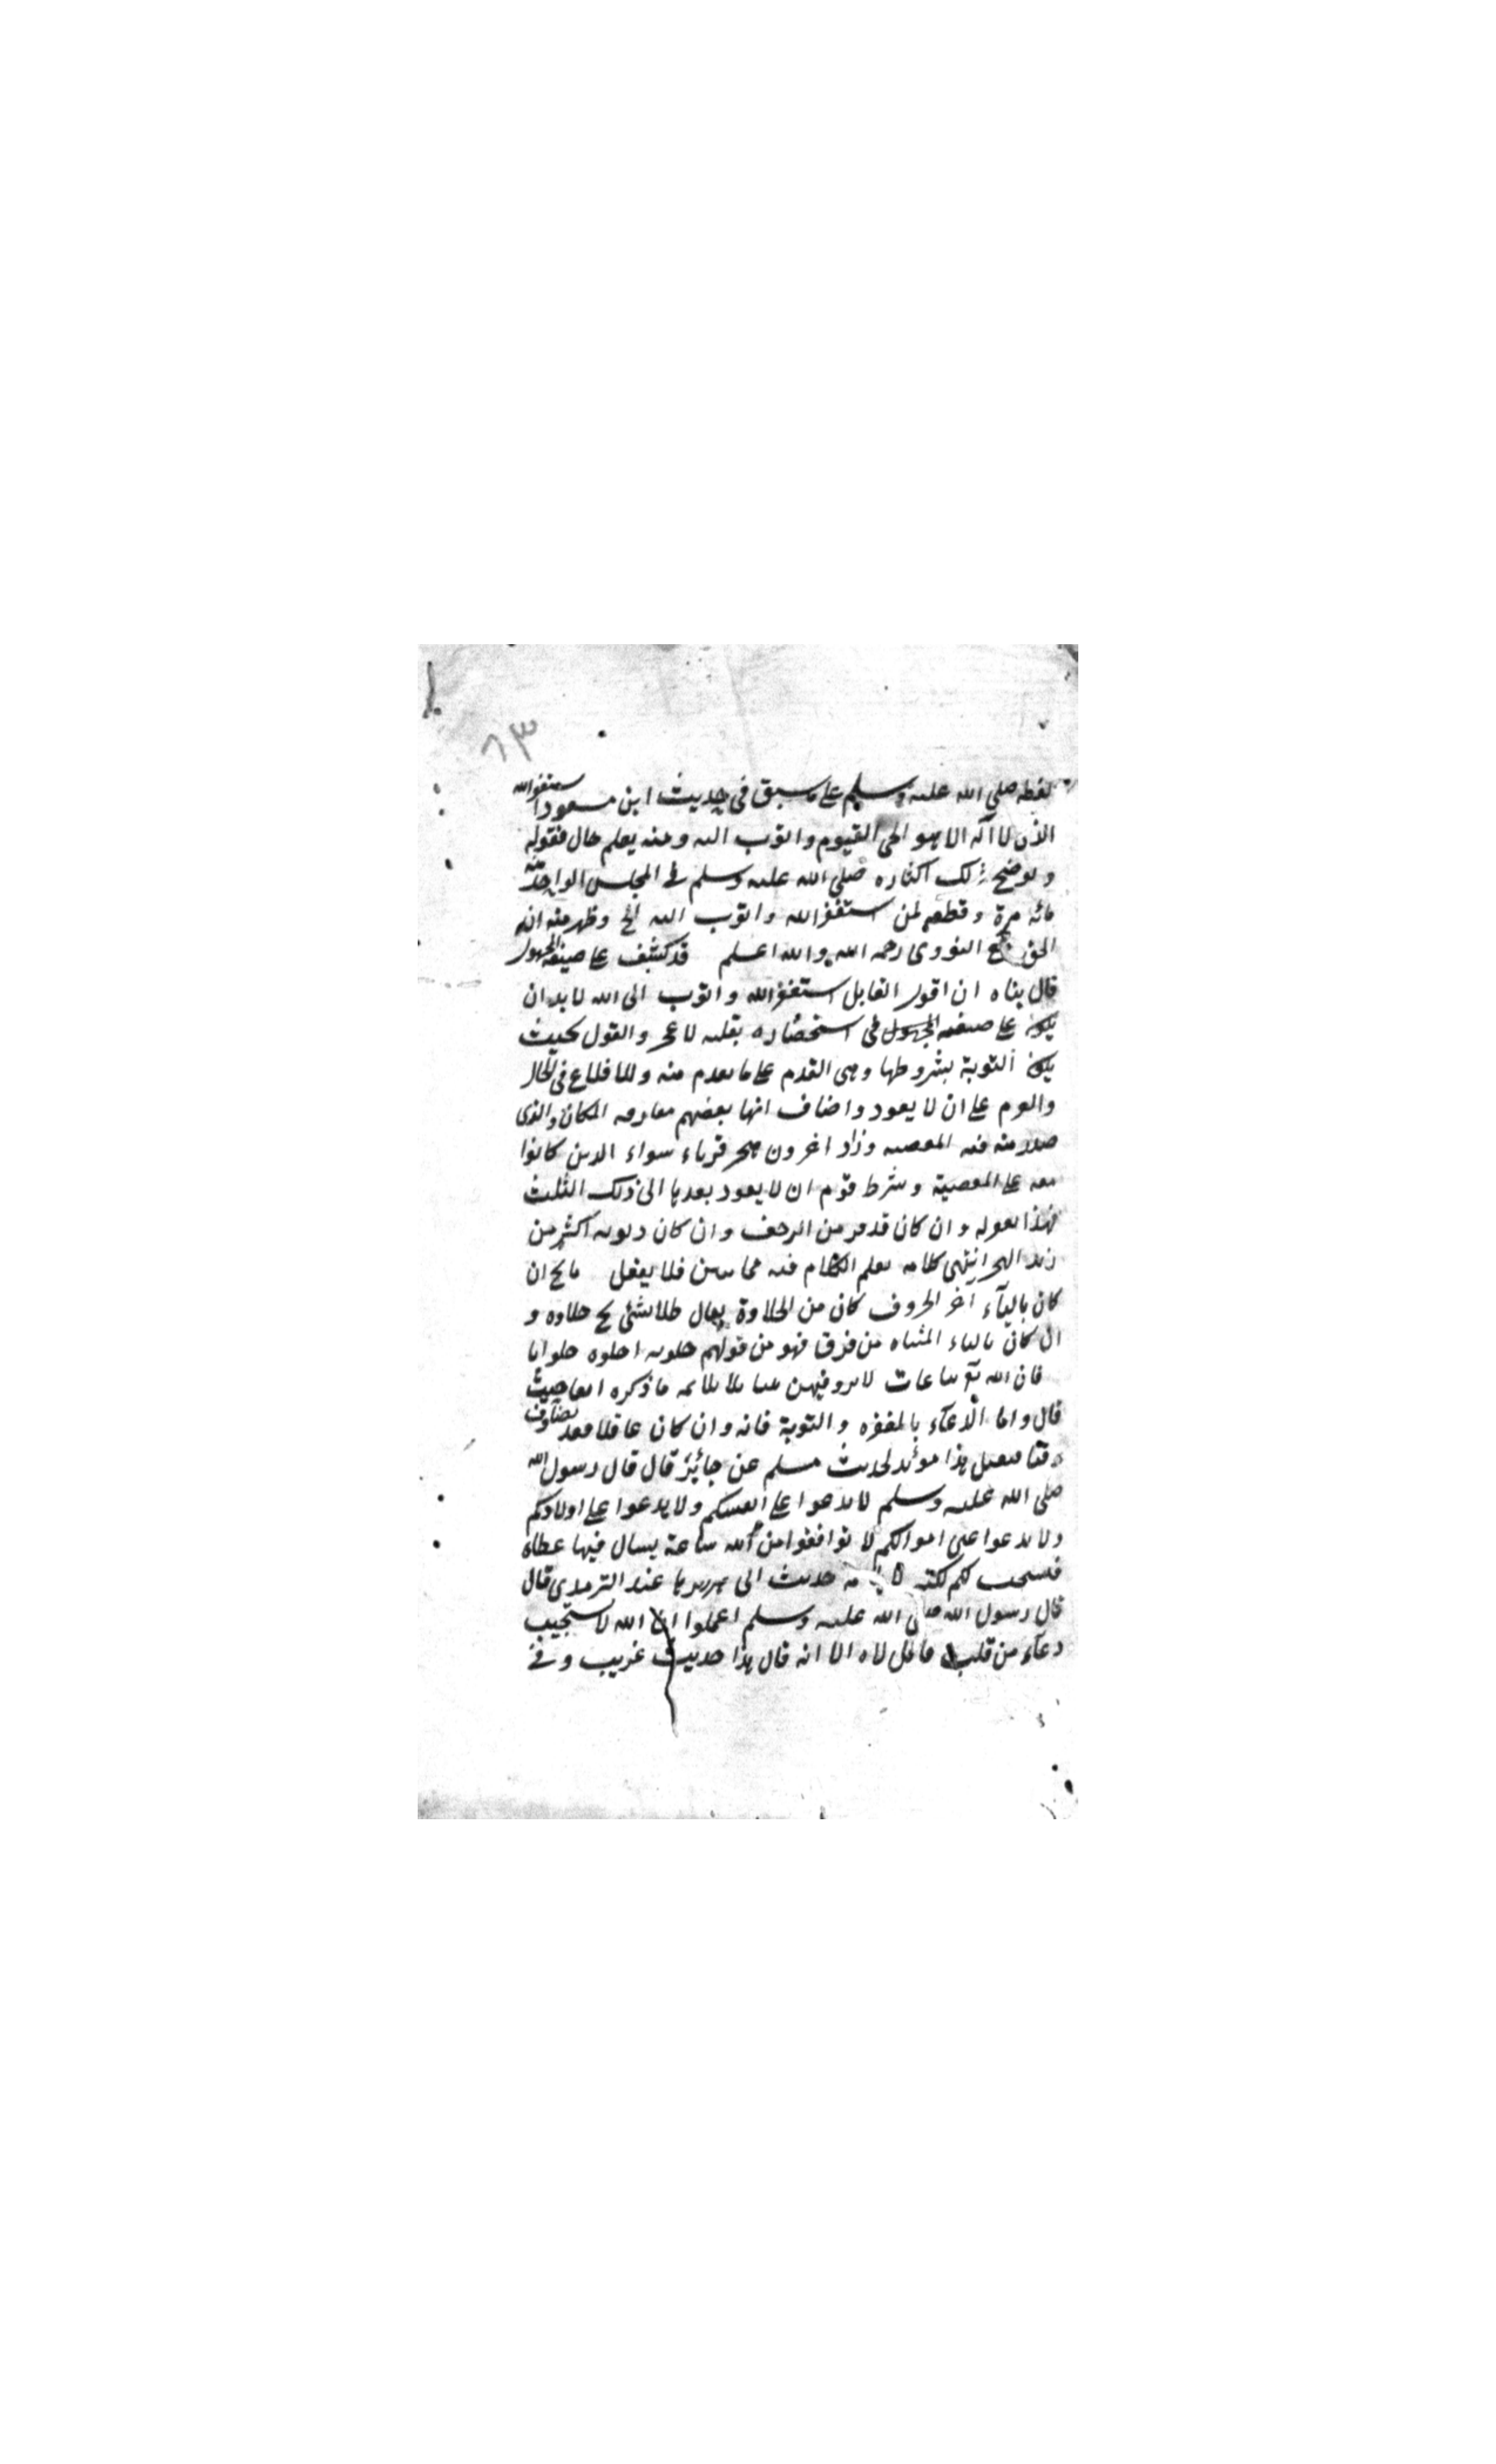 ٨٣
لفظه صلى الله عليه وسلم على ما سبق في حديث ابن مسعود استغفر الله
الذى لا اله الا هو الحى القيوم واتوب اليه ومنه يعلم حال فقوله
ويوضح ذلك اكثاره صلى الله عليه وسلم في المجلس الواحد منه
مائة مرة وقطعه لمن استغفر الله واتوب اليه الخ وظهر منه ان
الحق مع النووى رحمه الله والله اعلم قد كشف على صيغة المجهول
قال بيناه ان اقول القايل استغفر الله واتوب الى الله لا بد ان
يكون على صيغة المجهول في استحضاره بقلبه لا عجر والقول بحيث
يكون التوبة بشروطها وهى الندم على ما تقدم منه والاقلاع في الحال
والعزم على ان لا يعود واضاف اليها بعضهم مفارقة المكان والذى
صدر منه فيه المعصية وزاد اخرون هجر قرناء سواء الذين كانوا
معه على المعصية وشرط قوم ان لا يعود بعدها الى ذلك الثلث
فهذا بقوله وان كان قد فر من الزحف وان كان ذنوبه اكثر من
زبد البحر انتهى كلامه يعلم الكلام فيه مما فلا يغفل ما يح ان
كان بالياء آخر الحروف كان من الحلاوة يقال حلا الشئ يح حلاوة و
ان كان بالياء المثناه من فوق فهو من قولهم حلوته احلوه حلوانا
فان الله تع ساعات لا يرد فيهن سايلا يلايمه ما ذكره حيث
قال واما الدعاء بالمغفرة والتوبة فانه وان كان غافلا فقد يصادف
وقتا فيقبل هذا مؤيد لحديث مسلم عن جابر قال قال رسول الله
صلى الله عليه وسلم لا تدعوا على انفسكم ولا تدعوا على اولادكم
ولا تدعوا على اموالكم لا توافقوا من الله ساعة يسال فيها عطاء
فيستجيب لكم لكنه حديث ابى هريرة عند الترمذى قال
قال رسول الله صلى الله عليه وسلم اعملوا ان الله لا يستجيب
دعاء من قلب غافل لاه الا انه قال هذا حديث غريب وفى